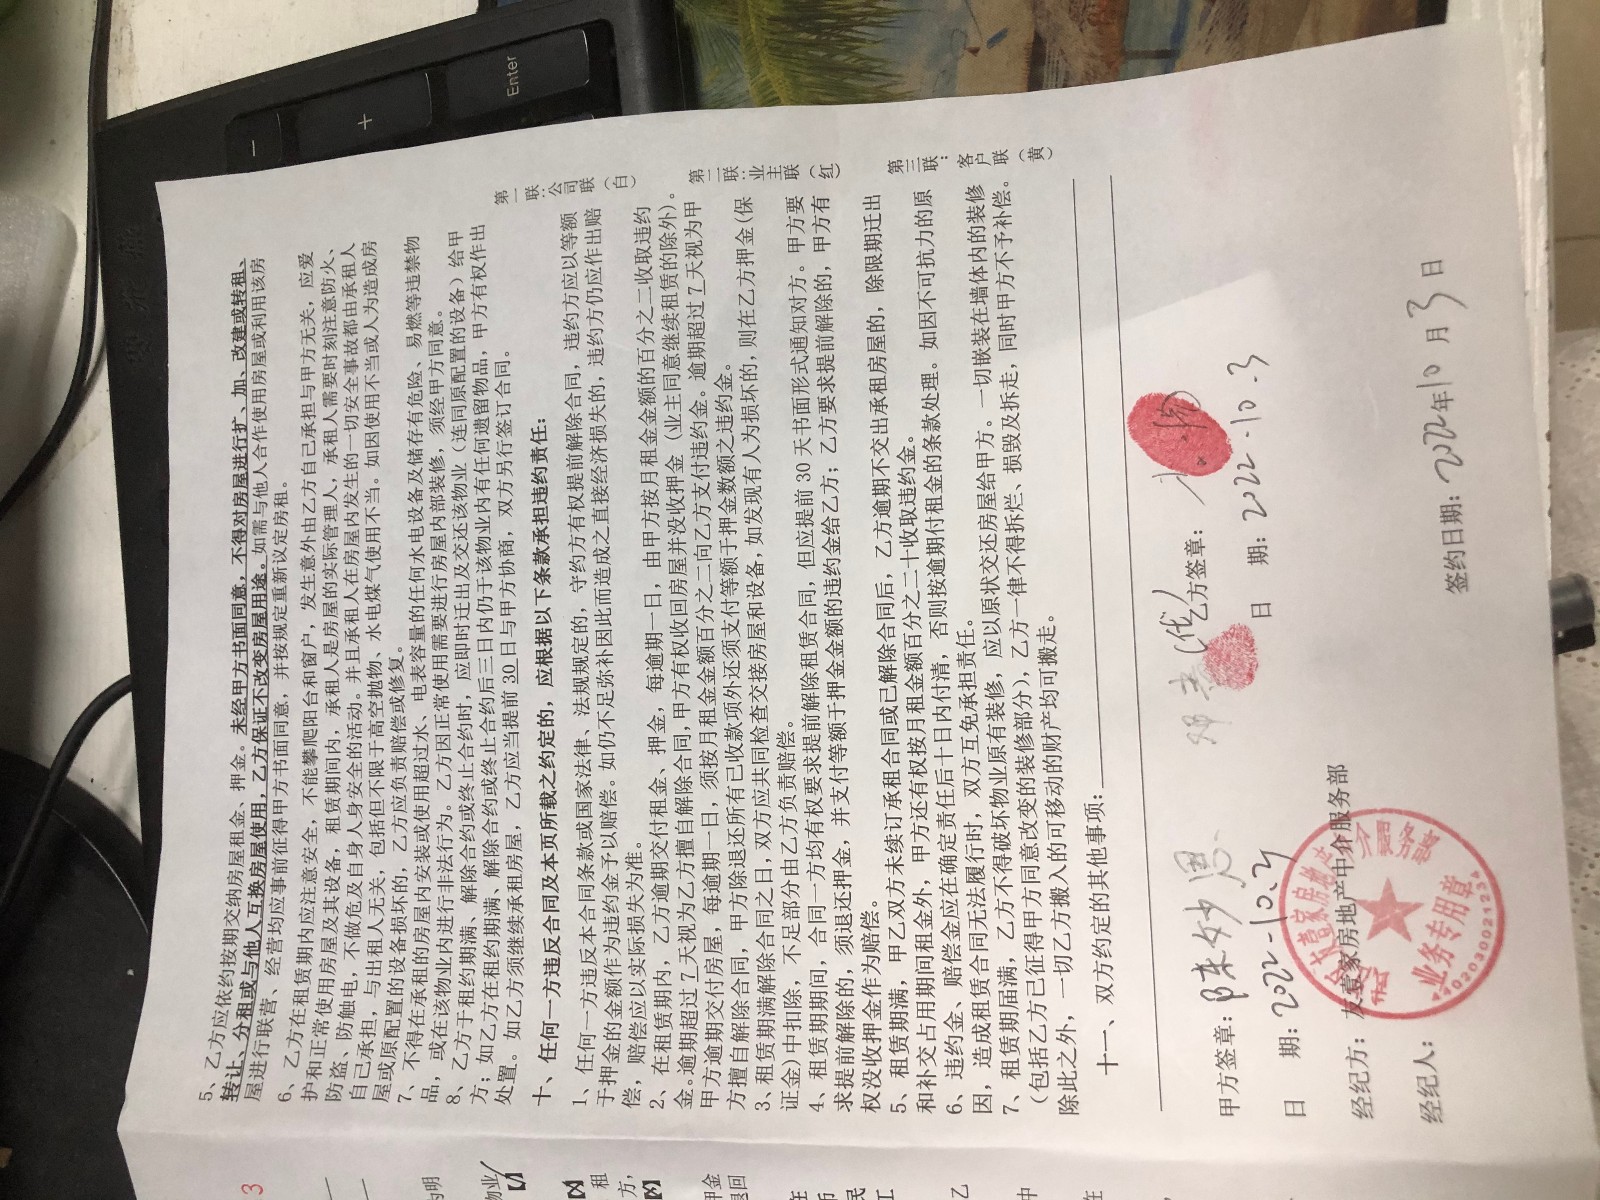 5、乙方应依约按期交纳房屋租金、押金。未经甲方书面同意，不得对房屋进行扩、加、改建或转租、
转让、分租或与他人互换房屋使用，乙方保证不改变房屋用途。如需与他人合作使用房屋或利用该房
屋进行联营、经营均应事前征得甲方书面同意，并按规定重新议定房租。
6、乙方在租赁期内应注意安全，不能攀爬阳台和窗户，发生意外由乙方自己承担与甲方无关，应爱
护和正常使用房屋及其设备，租赁期间内，承租人是房屋的实际管理人，承租人需要时刻注意防火、
防盗、防触电，不做危及自身人身安全的活动。并且承租人在房屋内发生的一切安全事故都由承租人
自己承担，与出租人无关，包括但不限于高空抛物、水电煤气使用不当。如因使用不当或人为造成房
屋或原配置的设备损坏的，乙方应负责赔偿或修复。
7、不得在承租的房屋内安装或使用超过水、电表容量的任何水电设备及储存有危险、易燃等违禁物
品，或在该物业内进行非法行为。乙方因正常使用需要进行房屋内部装修，须经甲方同意。
8、乙方于租约期满、解除合约或终止合约时，应即时迁出及交还该物业（连同原配置的设备）给甲
方；如乙方在租约期满、解除合约或终止合约后三日内仍于该物业内有任何遗留物品，甲方有权作出
处置。如乙方须继续承租房屋，乙方应当提前30日与甲方协商，双方另行签订合同。
十、任何一方违反合同及本页所载之约定的，应根据以下条款承担违约责任：
1、任何一方违反本合同条款或国家法律、法规规定的，守约方有权提前解除合同，违约方应以等额
于押金的金额作为违约金予以赔偿。如仍不足弥补因此而造成之直接经济损失的，违约方仍应作出赔
偿，赔偿应以实际损失为准。
2、在租赁期内，乙方逾期交付租金、押金，每逾期一日，由甲方按月租金金额的百分之二收取违约
金。逾期超过7天视为乙方擅自解除合同，甲方有权收回房屋并没收押金（业主同意继续租赁的除外）。
甲方逾期交付房屋，每逾期一日，须按月租金金额百分之二向乙方支付违约金。逾期超过7天视为甲
方擅自解除合同，甲方除退还所有已收款项外还须支付等额于押金数额之违约金。
3、租赁期满解除合同之日，双方应共同检查交接房屋和设备，如发现有人为损坏的，则在乙方押金（保
证金）中扣除，不足部分由乙方负责赔偿。
4、租赁期期间，合同一方均有权要求提前解除租赁合同，但应提前30天书面形式通知对方。甲方要
求提前解除的，须退还押金，并支付等额于押金金额的违约金给乙方；乙方要求提前解除的，甲方有
权没收押金作为赔偿。
5、租赁期满，甲乙双方未续订承租合同或已解除合同后，乙方逾期不交出承租房屋的，除限期迁出
和补交占用期间租金外，甲方还有权按月租金额百分之二十收取违约金。
6、违约金、赔偿金应在确定责任后十日内付清，否则按逾期付租金的条款处理。如因不可抗力的原
因，造成租赁合同无法履行时，双方互免承担责任。
7、租赁期届满，乙方不得破坏物业原有装修，应以原状交还房屋给甲方。一切嵌装在墙体内的装修
（包括乙方已征得甲方同意改变的装修部分），乙方一律不得拆烂、损毁及拆走，同时甲方不予补偿。
除此之外，一切乙方搬入的可移动的财产均可搬走。
十一、双方约定的其他事项：
甲方签章：陈妙恩
乙方签章：
日 期：2022-10.3
日 期：2022-10.3
经纪方：友壹家房地产中介服务部
经纪人：
签约日期：2022年10月3日
业务专用章
第一联：公司联（白）
第二联：业主联（红）
第三联：客户联（黄）
Enter
+
-
3